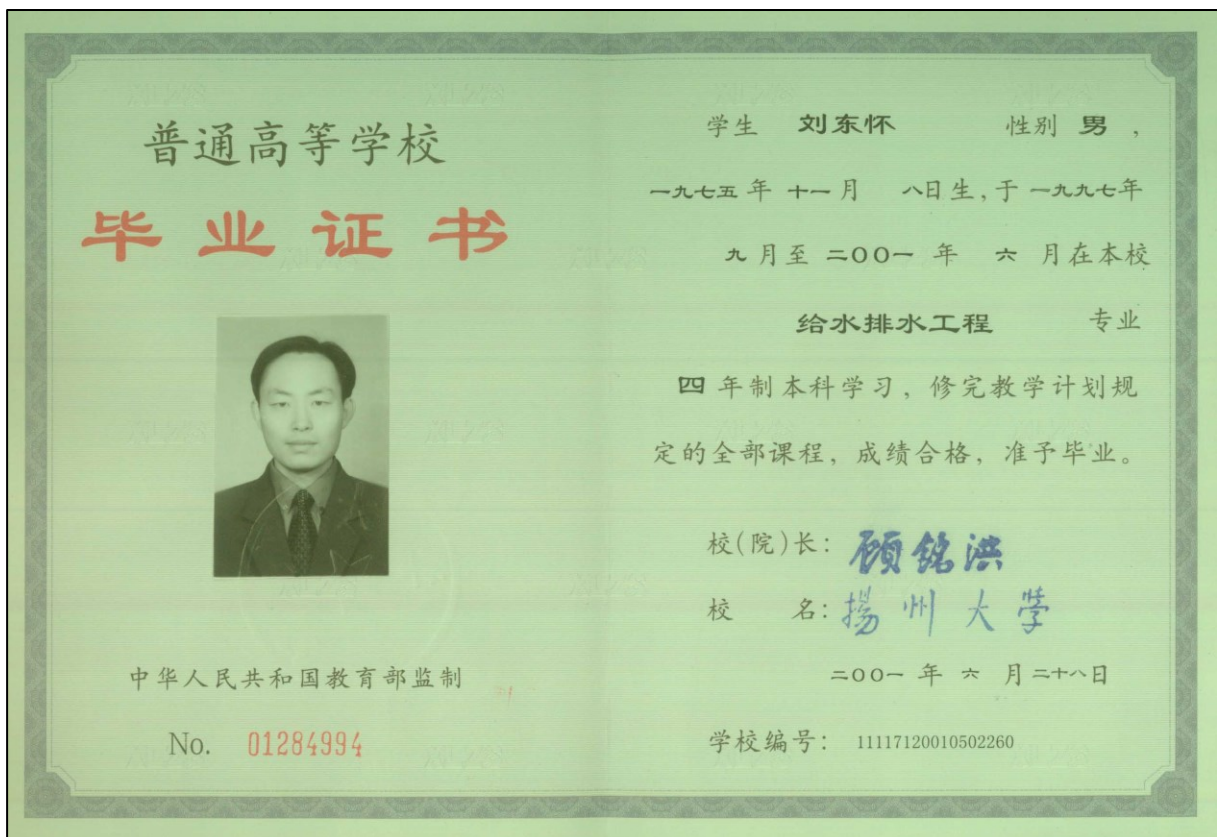 普通高等学校
毕业证书
中华人民共和国教育部监制
No. 01284994
学生 刘东怀 性别 男 ,
一九七五 年 十一 月 八日生,于 一九九七年
九 月至 二〇〇一 年 六 月在本校
给水排水工程 专业
四 年制本科学习，修完教学计划规
定的全部课程，成绩合格，准予毕业。
校(院)长: 顾铭洪
校 名: 揚州大学
二〇〇一 年 六 月 二十八日
学校编号: 11117120010502260